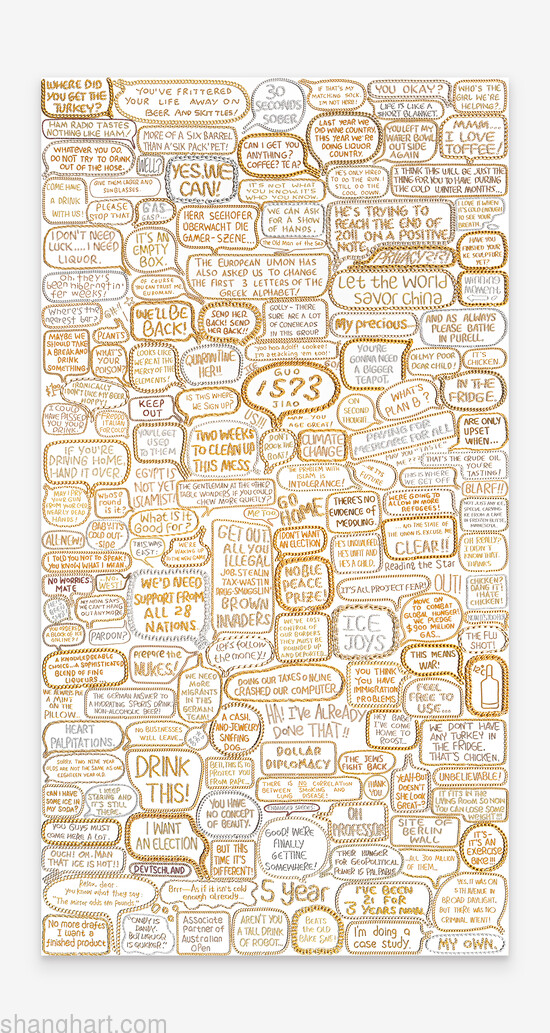 WHERE DID
YOU GET THE
TURKEY?
YOU'VE FRITTERED
YOUR LIFE AWAY ON
BEER AND SKITTLES!
30
SECONDS
SOBER
IF THAT'S MY
I'M NOT HERE!
YOU OKAY?
WHO'S THE
GIRL WE'RE
HELPING?
LIFE IS LIKE A
SHORT BLANKET.
HAM RADIO TASTES
NOTHING LIKE HAM!
MORE OF A SIX BARREL
THAN A 'SIX PACK' PET!
CAN I GET YOU
ANYTHING?
COFFEE? TEA?
LAST YEAR WE
DID WINE COUNTRY.
THIS YEAR WE'RE
DOING LIQUOR
COUNTRY.
YOU LEFT MY
WATER BOWL
OUTSIDE
AGAIN
MMM...
I LOVE
TOFFEE!
WHATEVER YOU DO,
DO NOT TRY TO DRINK
OUT OF THE HOSE.
WELL?
YES, WE
CAN!
IT'S NOT WHAT
YOU KNOW IT'S
WHO YOU KNOW
HE'S ONLY HIRED
TO DO THE RUN,
STILL DO THE
COOL DOWN.
I THINK THIS WILL BE JUST THE
THING FOR YOU TO HAVE DURING
THE COLD WINTER MONTHS...
COME HAVE
A DRINK
WITH US!
GIVE THEM LIQUOR AND
SUNGLASSES.
PLEASE
STOP THAT
GAS
GASP...
HERR SEEHOFER
ÜBERWACHT DIE
GAMER-SZENE...
WE CAN ASK
FOR A SHOW
OF HANDS.
The Old Man of the Sea
HE'S TRYING TO
REACH THE END OF
2011 ON A POSITIVE
NOTE.
I DON'T NEED
LUCK... I NEED
LIQUOR.
IT'S AN
EMPTY
BOX.
THE EUROPEAN UNION HAS
ALSO ASKED US TO CHANGE
THE FIRST 3 LETTERS OF THE
GREEK ALPHABET!
PRIVACY?!?!
HAVE YOU
FINISHED YOUR
ICE SCULPTURE
YET?
Oh, they've
been hibernatin'
fer weeks!
OF COURSE
YOU CAN TRUST ME
Let the world
savor china
Where's the
nearest bar?
WE'LL BE
BACK!
SEND HER
BACK! SEND
HER BACK!!
GOLLY-
SURE ARE A LOT
OF CONEHEADS
IN THIS GROUP
My precious.
AND AS ALWAYS
PLEASE BATHE
IN PURELL.
MAYBE WE
SHOULD TAKE
A BREAK AND
DRINK
SOMETHING
PEANUTS
WHAT'S
YOUR
POISON?
LOOKS LIKE
WE'RE AT THE
MERCY OF THE
ELEMENTS!
QUARANTINE
HER!!
I'm attacking 'em too!
YOU'RE
GONNA NEED
A BIGGER
TEAPOT.
OH MY POOR
DEAR CHILD!
IT'S
CHICKEN.
GUO
1573
JIAO
IRONICALLY
I DON'T LIKE MY BEER
HOPPY
KEEP
OUT
IS THIS WHERE
WE SIGN UP?
ON
SECOND
THOUGHT,
WHAT'S
PLAN B?
IN THE
FRIDGE.
I COULD
HAVE PASSED
YOU YOUR
DRINK!
ITALIAN
FOR COLD
YOU'LL GET
USED
TO THEM
TWO WEEKS
TO CLEAN UP
THIS MESS
US!!!
MAN... YOU
AGE GREAT!
DON'T
ROCK THE
BOAT!
CLIMATE
CHANGE
PRAYING FOR
MEDICARE FOR ALL
ARE ONLY
UPSET
WHEN...
IF YOU'RE
DRIVING HOME,
HAND IT OVER.
EGYPT IS
NOT YET
ISLAMIST!
THE PROBLEM WITH
ISLAM IS
INTOLERANCE!
THAT'S THE CRUDE OIL
YOU'RE
TASTING!
THIS IS WHERE
WE GET OFF
BLARF!!
THE GENTLEMEN AT THE OTHER
TABLE WONDERS IF YOU COULD
CHEW MORE QUIETLY?
whose
round is
it?
What is it
good for?
Me too
GO
HOME
THERE'S NO
EVIDENCE OF
MEDDLING.
WE'RE GOING TO
ALLOW IN MORE
REFUGEES!
ALL NEW!
BABY IT'S
COLD OUT-
SIDE
THIS WAY
EAST!
GET OUT
ALL YOU
ILLEGAL
JOB STEALIN'
TAX-WASTIN'
DRUG-SMUGGLIN'
BROWN
INVADERS
DON'T WANT
AN ELECTION
HE'S UNINJURED
HE'S UNFIT AND
HE'S A CHILD.
THE STATE OF
THE UNION IS EXCUSE ME
CLEAR!!
Reading the Star
OH REALLY?
I DIDN'T
KNOW THAT.
THANKS.
I TOLD YOU NOT TO SPEAK
YOU KNOW WHAT I MEAN.
NO WORRIES,
MATE
WE'D NEED
SUPPORT FROM
ALL 28
NATIONS.
NOBLE
PEACE
PRIZE!
IT'S ALL PROJECT FEAR
OUT!
CHICKEN?
DANG IT,
I HATE
CHICKEN!
MOVE ON
TO COMBAT
GLOBAL HUNGER!
WE PLEDGE
$900 MILLION
GAS...
ICE
JOYS
PARDON?
Let's follow
the money!
WE'VE LOST
CONTROL OF
OUR BORDERS
THEY MUST BE
ROUNDED UP
AND DEPORTED
THE FLU
SHOT!
A KNOWLEDGEABLE
CHOICE...A SOPHISTICATED
BLEND OF FINE
LIQUOURS
Prepare the
NUKES!
THIS MEANS
WAR!
WE ALWAYS PUT
A MINT
ON THE
PILLOW.
THE GERMAN ANSWER TO
A HYDRATING SPORTS DRINK:
NON-ALCOHOLIC BEER!
WE NEED
MORE
MIGRANTS
IN THIS
GERMAN
TEAM!
DOING OUR TAXES ONLINE
CRASHED OUR COMPUTER
YOU THINK
YOU HAVE
IMMIGRATION
PROBLEMS?
FEEL
FREE TO
USE...
HEART
PALPITATIONS.
NO BUSINESSES
WILL LEAVE
A CASH
AND-JEWELRY
SNIFFING
DOG.
HA! I'VE ALREADY
DONE THAT!!
HEY BABE
I'VE COME
HOME TO
ROOST...
WE DON'T HAVE
ANY TURKEY IN
THE FRIDGE,
THAT'S CHICKEN.
SORRY, TWO NINE YEAR
OLDS ARE NOT THE SAME AS ONE
EIGHTEEN YEAR OLD.
DRINK
THIS!
DOLLAR
DIPLOMACY
THE JEWS
FIGHT BACK
YEAH-BUT
DOESN'T
SHE LOOK
GREAT?
UNBELIEVABLE!
CAN I HAVE
SOME ICE IN
MY SODA?
I KEEP
STARING AND
IT'S STILL
THERE...
YOU HAVE
NO CONCEPT
OF BEAUTY.
THERE IS NO CORRELATION
BETWEEN SMOKING AND
LUNG DISEASE
THANK
YOU
IT FITS IN OUR
LIVING ROOM SO NOW
YOU CAN LOSE SOME
WEIGHT!!!
YOU GUYS MUST
COME HERE A LOT.
I WANT
AN ELECTION
GOOD! WE'RE
FINALLY
GETTING
SOMEWHERE!
OH
PROFESSOR!
SITE OF
BERLIN
WALL
IT'S-
IT'S AN
EXERCISE
BIKE!!!
OUCH! OH, MAN
THAT ICE IS HOT!!
DEUTSCHLAND
BUT THIS
TIME IT'S
DIFFERENT!
THEIR HUNGER
FOR GEOPOLITICAL
POWER IS PALPABLE
ALL 300 MILLION
OF THEM.
Relax, dear.
you know what they say,
Brrr-As if it isn't cold
enough already.
5 year
I'VE BEEN
21 FOR
3 YEARS NOW.
YES, IT WAS ON
5TH AVENUE IN
BROAD DAYLIGHT.
BUT THERE WAS NO
CRIMINAL INTENT!
No more drafts
I want a
finished product
"CANDY IS
DANDY,
BUT LIQUOR
IS QUICKER."
Associate
Partner of
Australian
Open
AREN'T YOU
A TALL DRINK
OF ROBOT...
BEATS
THE OLD
BAKE SALE!
I'm doing a
case study.
MY OWN.
shanghart.com